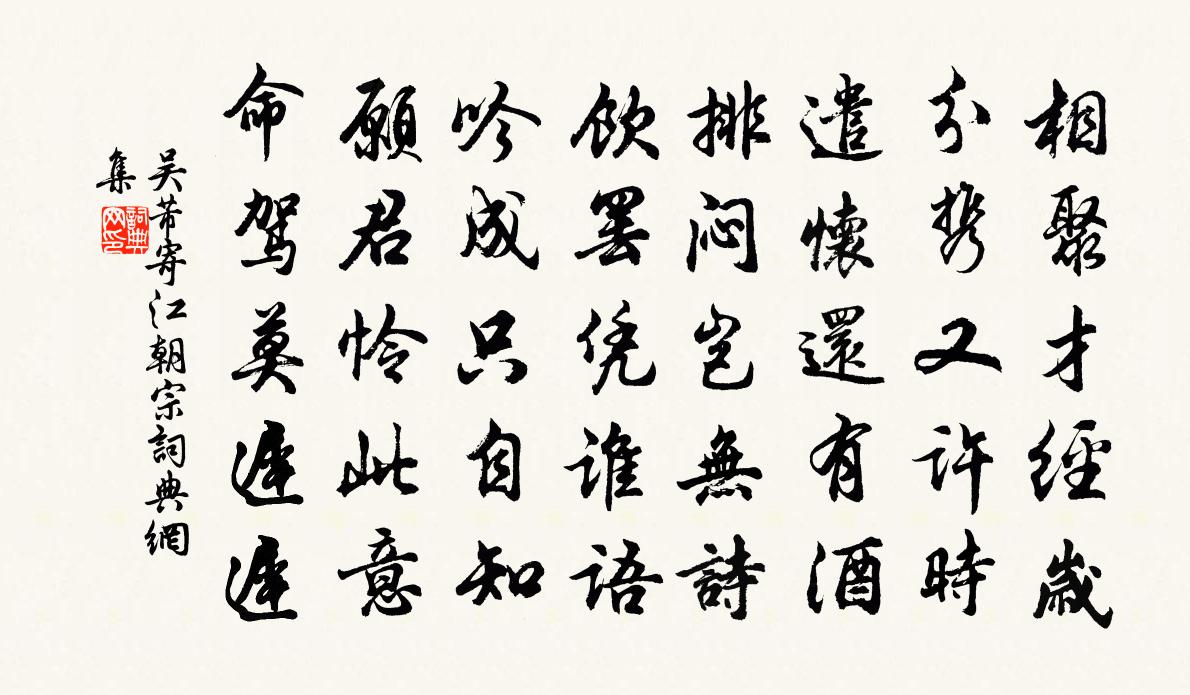 相聚才經歲
分携又許時
遣懷還有酒
排悶豈無詩
飲罷凭誰語
吟成只自知
願君怜此意
命駕莫遲遲
吴芾寄江朝宗詞典網
集
詞典
网印